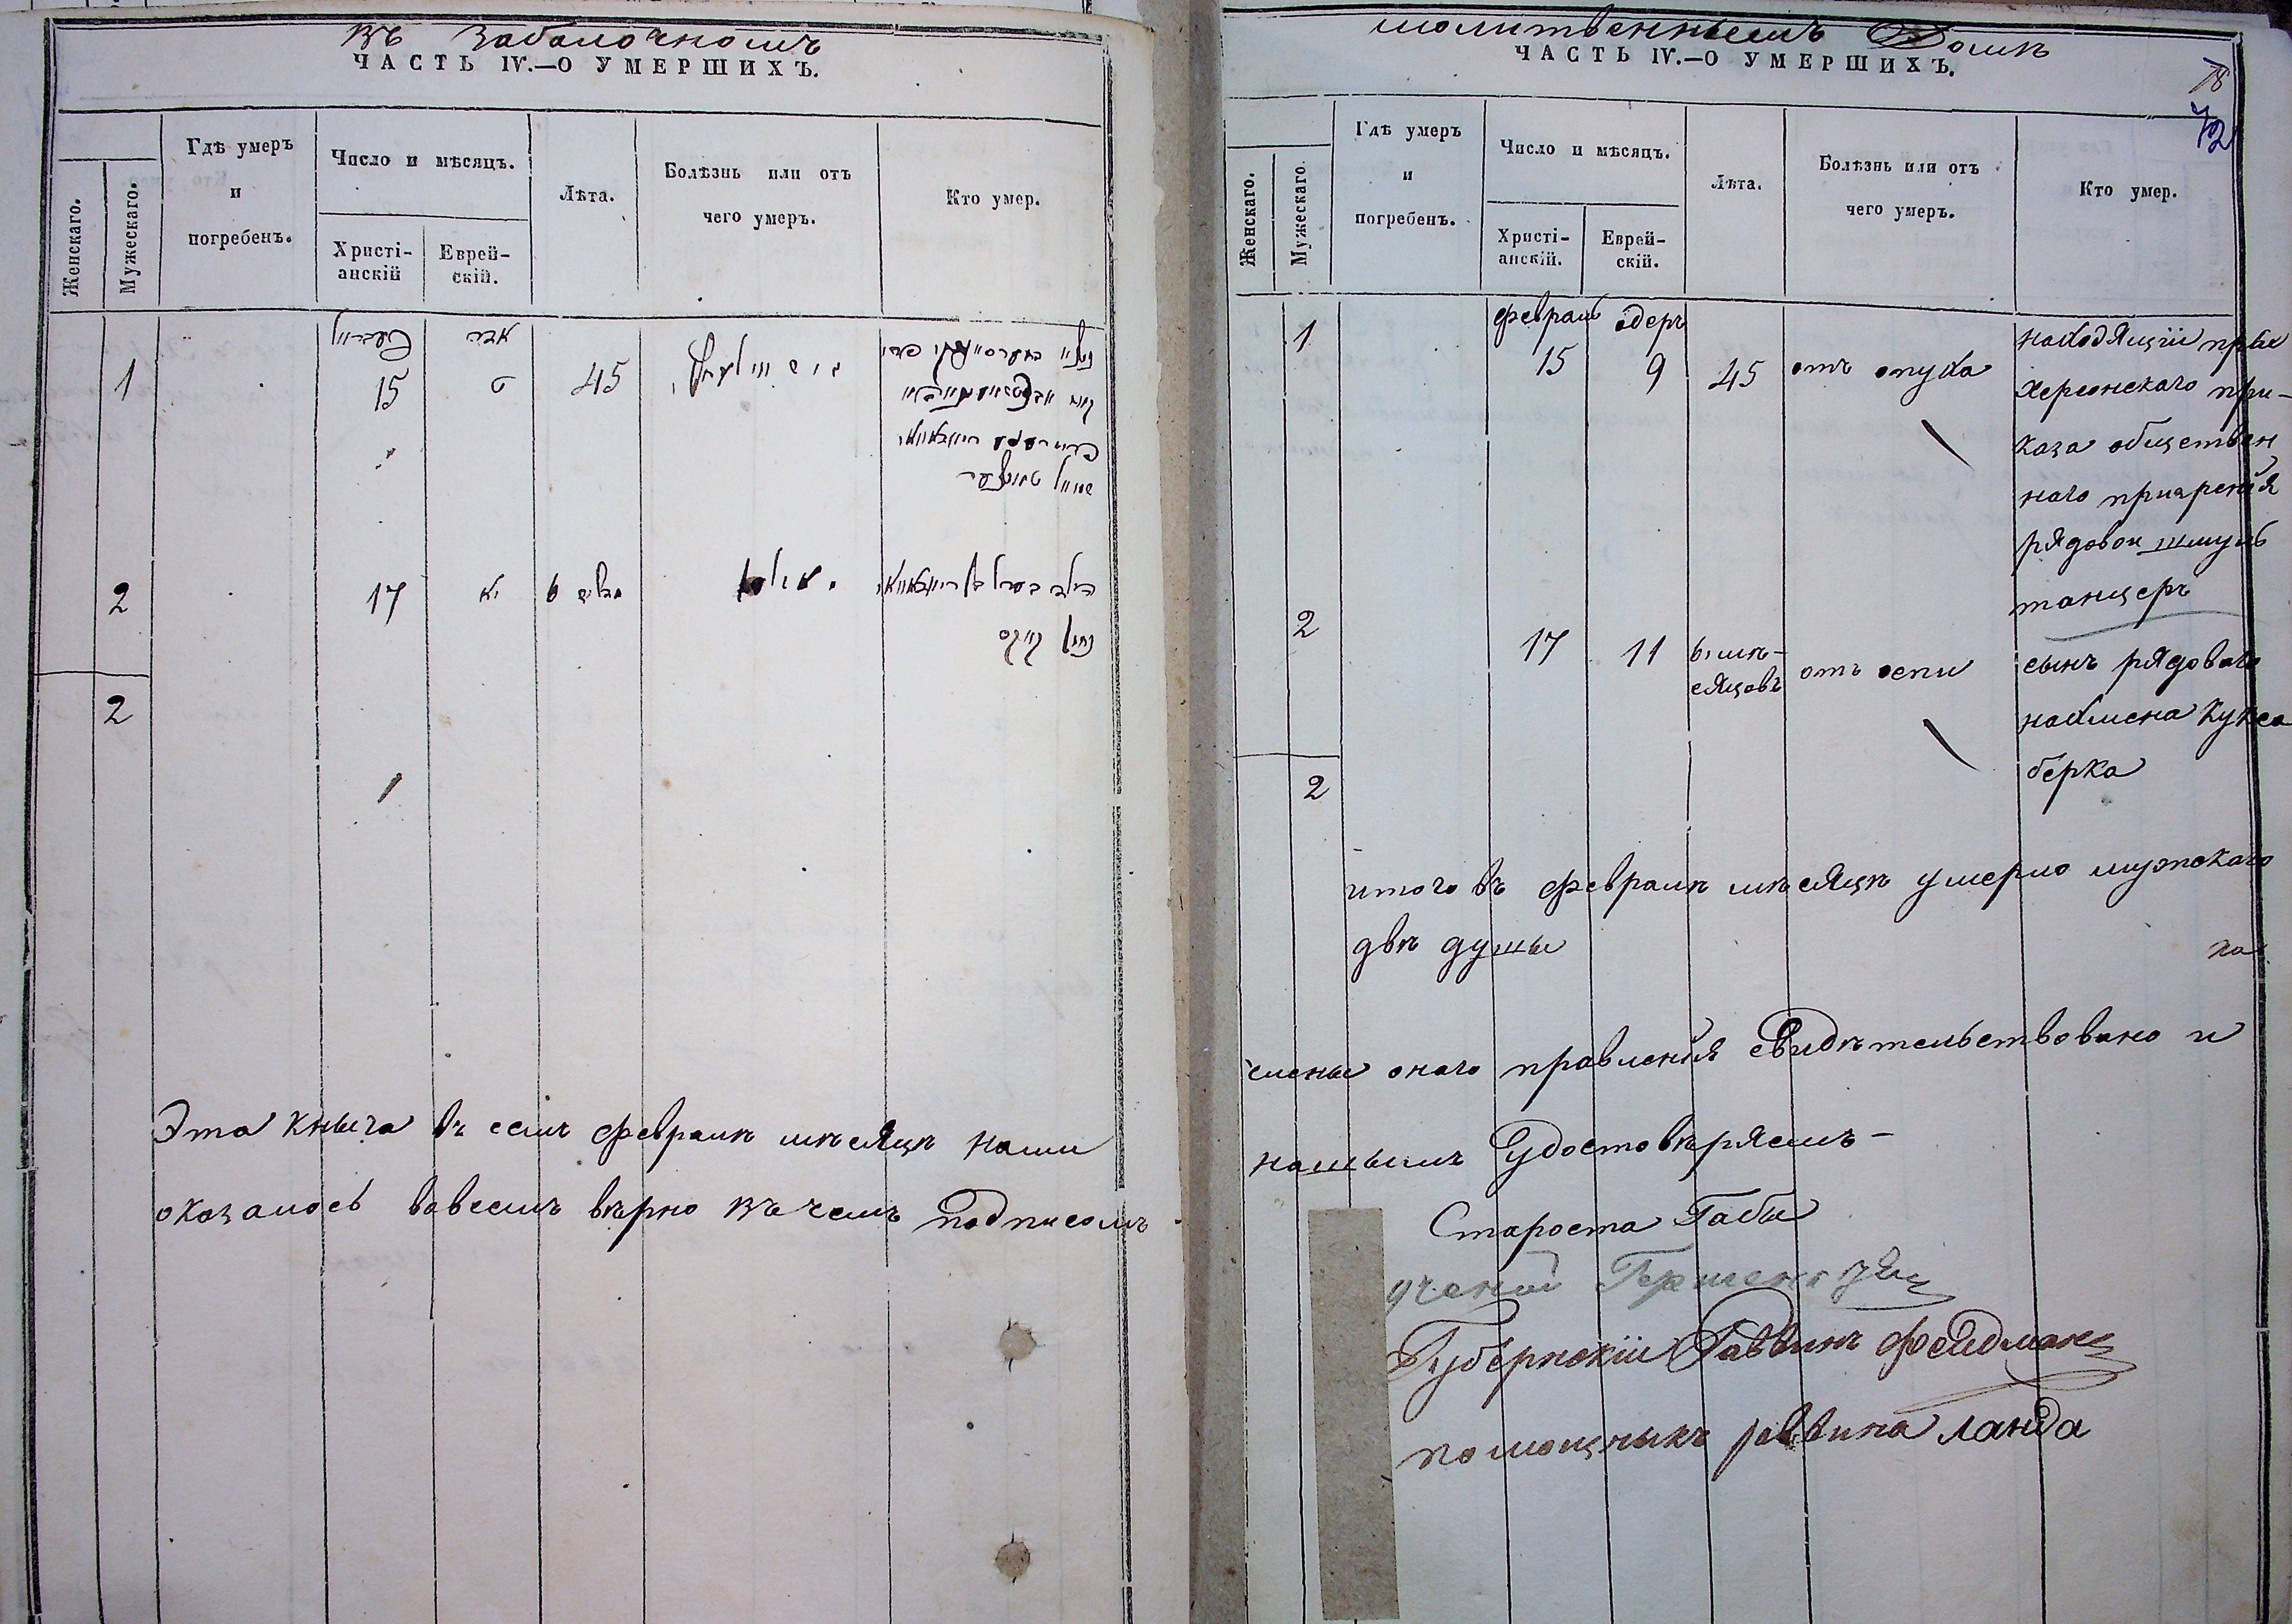 въ Заболочномъ
ЧАСТЬ IV.—О УМЕРШИХЪ.
Женскаго.
Мужескаго.
Гдѣ умеръ
и
погребенъ.
Число и мѣсяцъ.
Христі-
анскій
Еврей-
скій.
Лѣта.
Болѣзнь или отъ
чего умеръ.
Кто умер.
1
15
ט
45
2
17
יא
6
2
Эта кныга въ семъ февралѣ мѣсяцѣ нами
оказалось вовсемъ вѣрно въ чемъ подписомъ
молитвенныемъ Домѣ
ЧАСТЬ IV.—О УМЕРШИХЪ.
78
72
Женскаго.
Мужескаго.
Гдѣ умеръ
и
погребенъ.
Число и мѣсяцъ.
Христі-
анскій.
Еврей-
скій.
Лѣта.
Болѣзнь или отъ
чего умеръ.
Кто умер.
1
февраль
15
одеръ
9
45
отъ опуха
находящіи при
херсонскаго при-
каза обществен
наго призренія
рядовои шмуль
танцеръ
2
17
11
6 мѣ-
сяцовъ
отъ оспи
сынъ рядоваго
нахмена Кукса
берка
2
итого въ февралѣ мѣсяцѣ умерло мужскаго
двѣ душы
на
члены онаго правленія свидѣтельствовано и
нашымъ Удостовѣряемъ—
Староста Габы
ученой Гершенз
Губернскіи Раввинъ Фейдман
помощныкъ раввина Ланда